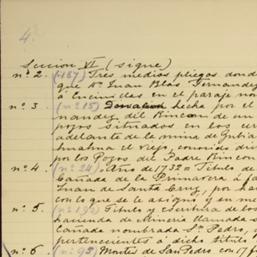 4.
Sección VI (sigue)
nº 2. (187) Tres medios pliegos dond
que Dn. Juan Blas Fernandez
á Encinillas en el paraje no
nº 3. (nº 215) Donacion hecha por el
nandez del Rincon de un
pozos situados en los cer
adelante de la mina de
el viejo, conocido
por los Pozos del Padre Rincon
nº 4. (nº 24) Año de 1732 = Titulo de
Cañada de la Primavera á fa
Juan de Santa Cruz, por ha
con lo que se le asignó y en me
nº 5. (nº 192) Titulo y Escritura de
hacienda de Minería llamada S
Cañada nombrada Sn. Pedro, y
pertenecientes á dicho titulo
nº 6. (nº 93) Montes de San Pedro con 17 f